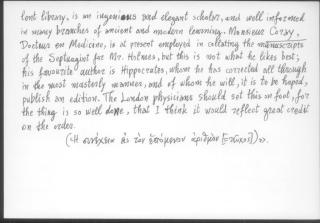 lent library, is an ingenious and elegant scholar, and well informed
in many branches of ancient and modern learning. Monsieur Coray,
Docteur en Medicine, is at present employed in collating the manuscripts
of the Septuagint for Mr. Holmes, but this is not what he likes best;
his favourite author is Hippocrates, whom he has corrected all through
in the most masterly manner, and of whom he will, it is to be hoped,
publish an edition. The London physicians should set this on foot, for
the thing is so well done, that I think it would reflect great credit
on the order.
(«Ἡ συνέχεια εἰς τὸν ἑπόμενον ἀριθμὸν [=τεῦχος])».